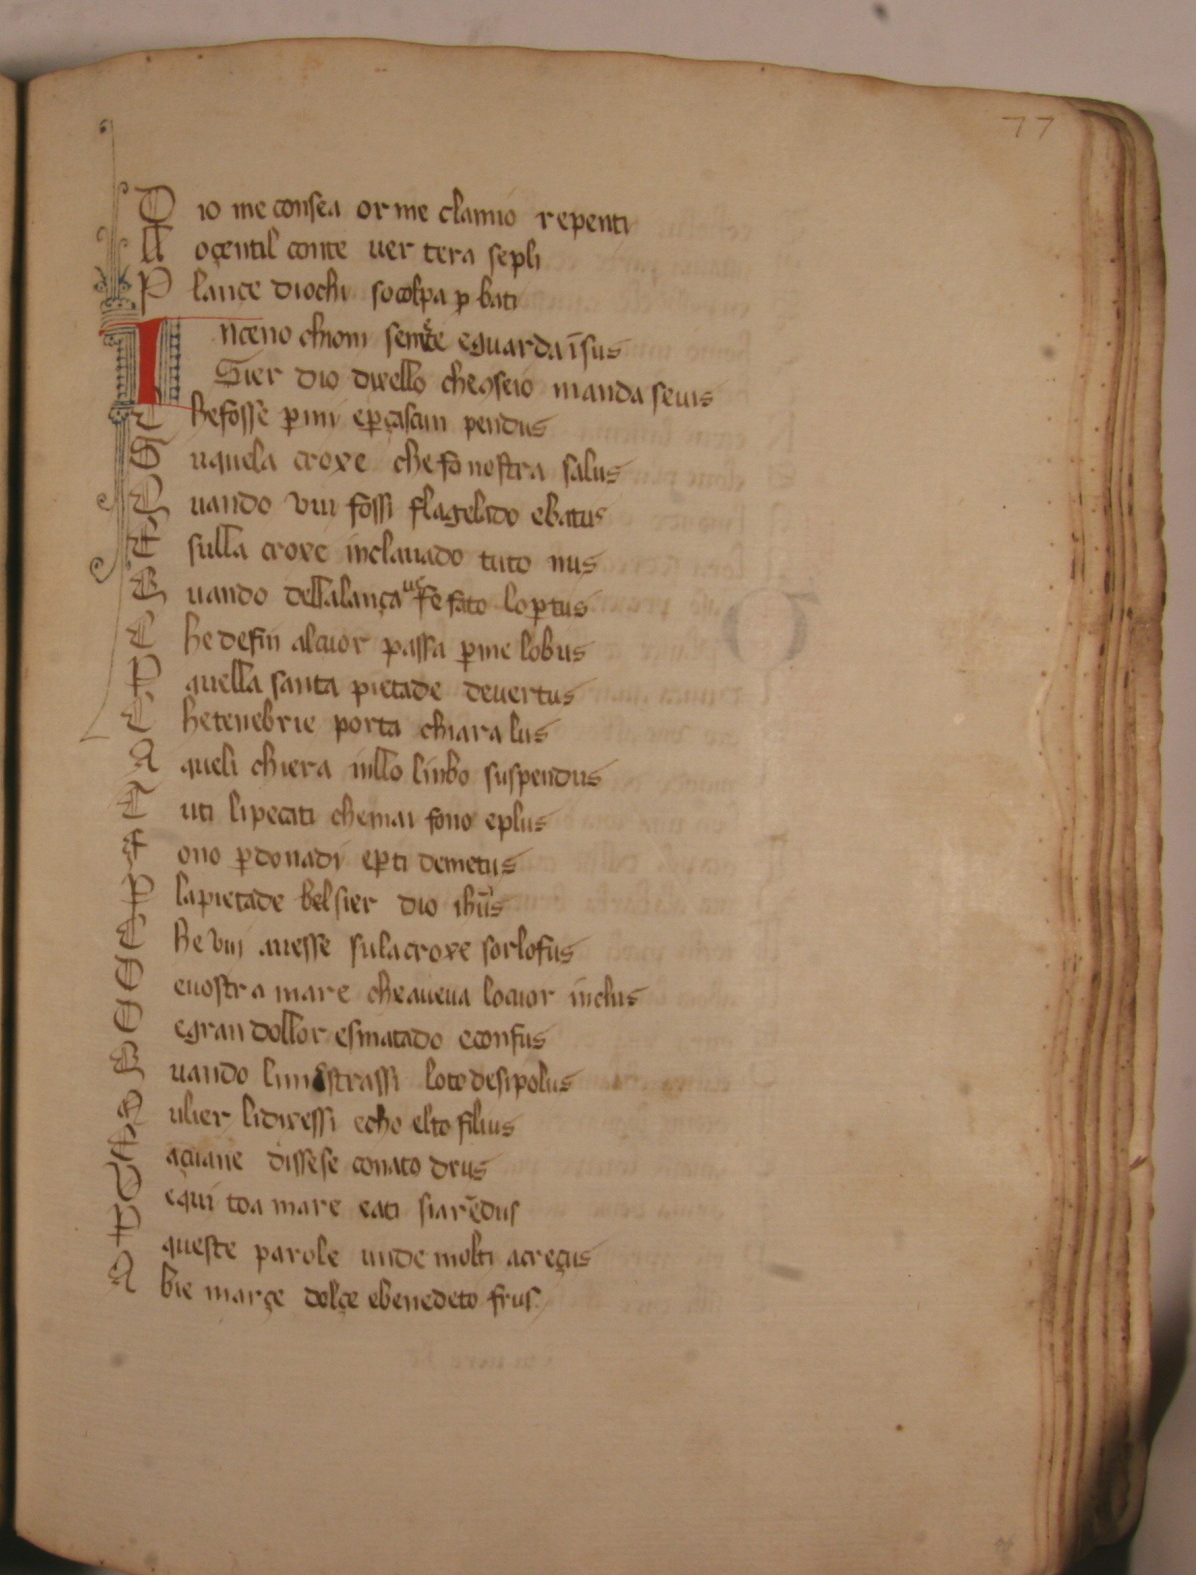 77
D io me consea or me clamio repenti
A oçentil conte uer tera sepli
P lançe diochi so colpa ꝑ bati
I nçeno chion semp̃e eguarda ī sus
Sier dio dixello che ꝯseio manda seuis
C he fosse ꝑmi epçascun pendus
S uquela croxe che fo nostra salus
Q uando vui fossi flagelado ebatus
E sulla croxe inclauado tuto nus
Q uando dellalança ue fe fato lo ꝑtus
C he defin alcuor passa ꝑme lobus
P quella santa pietade deuertus
C he tenebrie porta chiara lus
A queli chiera inllo linbo suspendus
T uti li pecati chemai fono eplus
F ono ꝑdonadi eꝑti demetus
P la pietade bel sier dio ihūs
C he vui auesse sula croxe sorlofus
D e uostra mare che aueua locuor inclus
D e gran dollor esmatado econfus
Q uando limostrassi loto desipolus
M ulier li dixessi echo elto filius
E açuane dissese conato drus
D equi toa mare eati siarēdus
P queste parole unde molti acreçus
A bie marçe dolçe ebenedeto frus